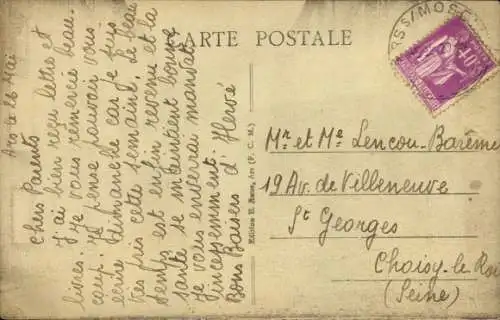 CARTE POSTALE
Ars le 26 Mai
Chers Parents
J'ai bien reçu lettre et
livres. Je vous remercie beau-
coup. Je pense pouvoir vous
ecrire Dimanche car je suis
tres pris cette semaine. Le beau
temps est enfin revenu et la
santé se maintient bonne
Je vous enverrai mandats
incessemment.
Bons Baisers d'Hervé
Edition R. Ars (P. C. M.)
ARS S/MOS
40c
Mr et Me Lencou-Barême
19 Av. de Villeneuve
St Georges
Choisy-le-Roi
(Seine)